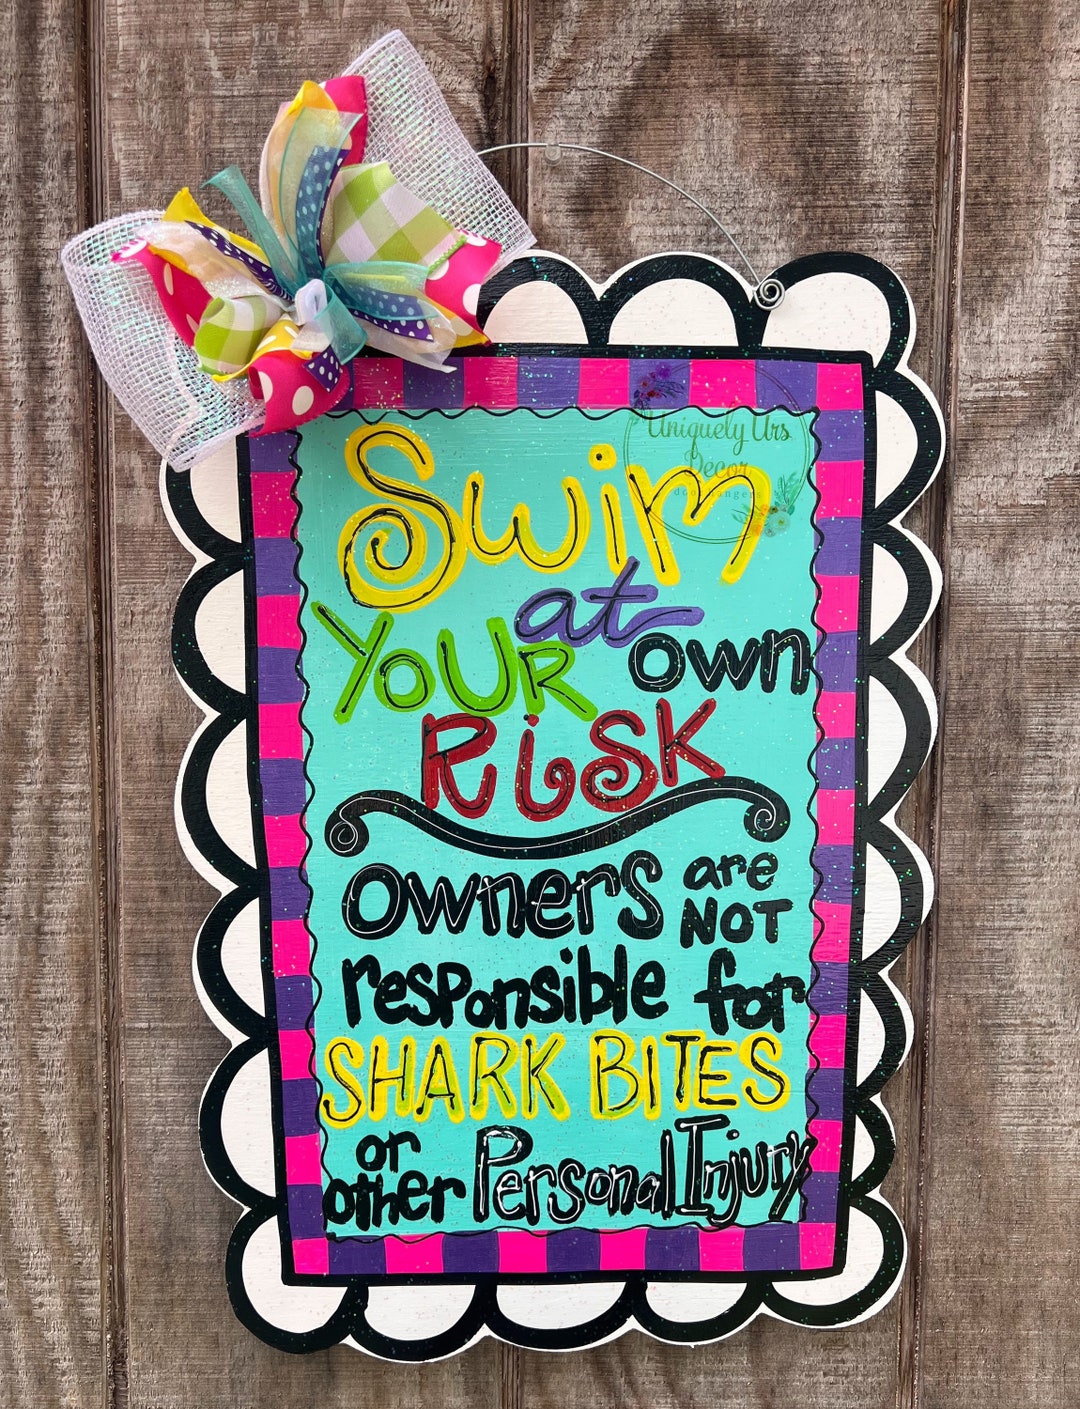 Uniquely Urs
Decor
door hangers
Swim
at
YOUR OWN
RiSK
OWNERS are
NOT
responsible for
SHARK BITES
or
other Personal Injury